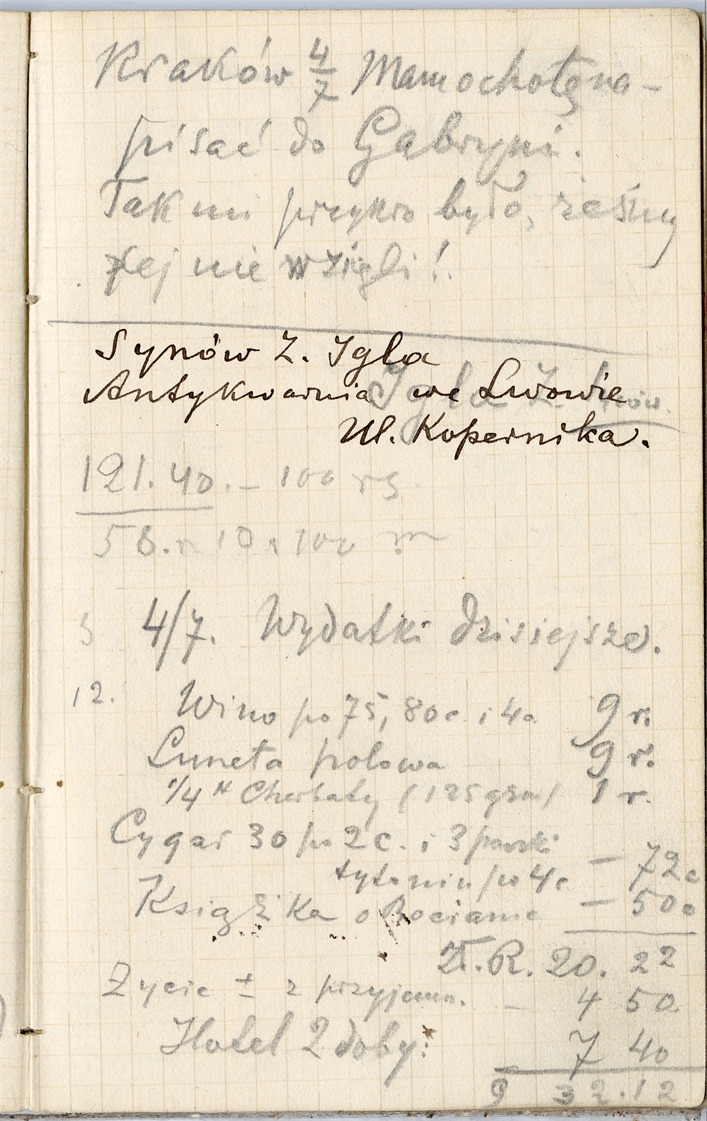 Kraków 4/7 Mam ochotę na-
pisać do Gabryni.
Tak mi przykro było, żeśmy
jej nie wzięli!
Synów Z. Igla
Antykwarnia we Lwowie
Igla Z. Lwów.
Ul. Kopernika.
121.40. – 100 rs
58. 10 100 m
4/7. Wydatki dzisiejsze.
12.
Wino po 75, 80c. i 40 9 r.
Luneta polowa 9 r.
1/4 Cherbaty (125 grm) 1 r.
Cygar 30 po 2c. i 3 paczki
tytoniu po 4c – 72c
Książka o Bocianie – 50c
Zł. R. 20. 22
Życie ± z przyjemn. – 4 50.
Hotel 2 doby: 7 40
9 32.12